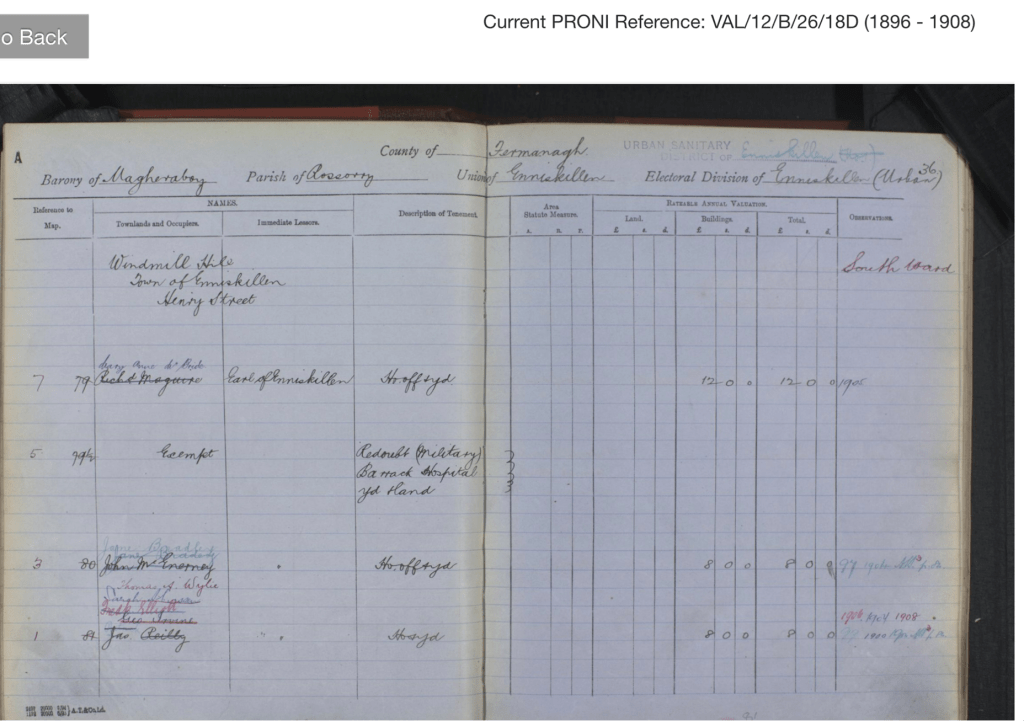 Current PRONI Reference: VAL/12/B/26/18D (1896 - 1908)
o Back
A
County of Fermanagh
URBAN SANITARY
DISTRICT OF Enniskillen
36
Barony of Magheraboy Parish of Rossorry Union of Enniskillen Electoral Division of Enniskillen (Urban)
Reference to Map.
NAMES.
Townlands and Occupiers.
Immediate Lessors.
Description of Tenement.
Area Statute Measure.
A. R. P.
RATEABLE ANNUAL VALUATION.
Land.
£ s. d.
Buildings.
£ s. d.
Total.
£ s. d.
OBSERVATIONS.
Windmill Hill
South Ward
Town of Enniskillen
Henry Street
Mary Anne McBride
7 79 Richd Maguire Earl of Enniskillen Ho off & yd 12 0 0 12 0 0 1905
5 79½ Exempt Redoubt (Military)
Barrack Hospital
yd & land
Jane
3 80 John McEnerney " Ho. off & yd 8 0 0 8 0 0
Thomas A Wylie
Fredk Elliott
Geo
1908
1 81 Jas. Reilly " " Ho & yd 8 0 0 8 0 0